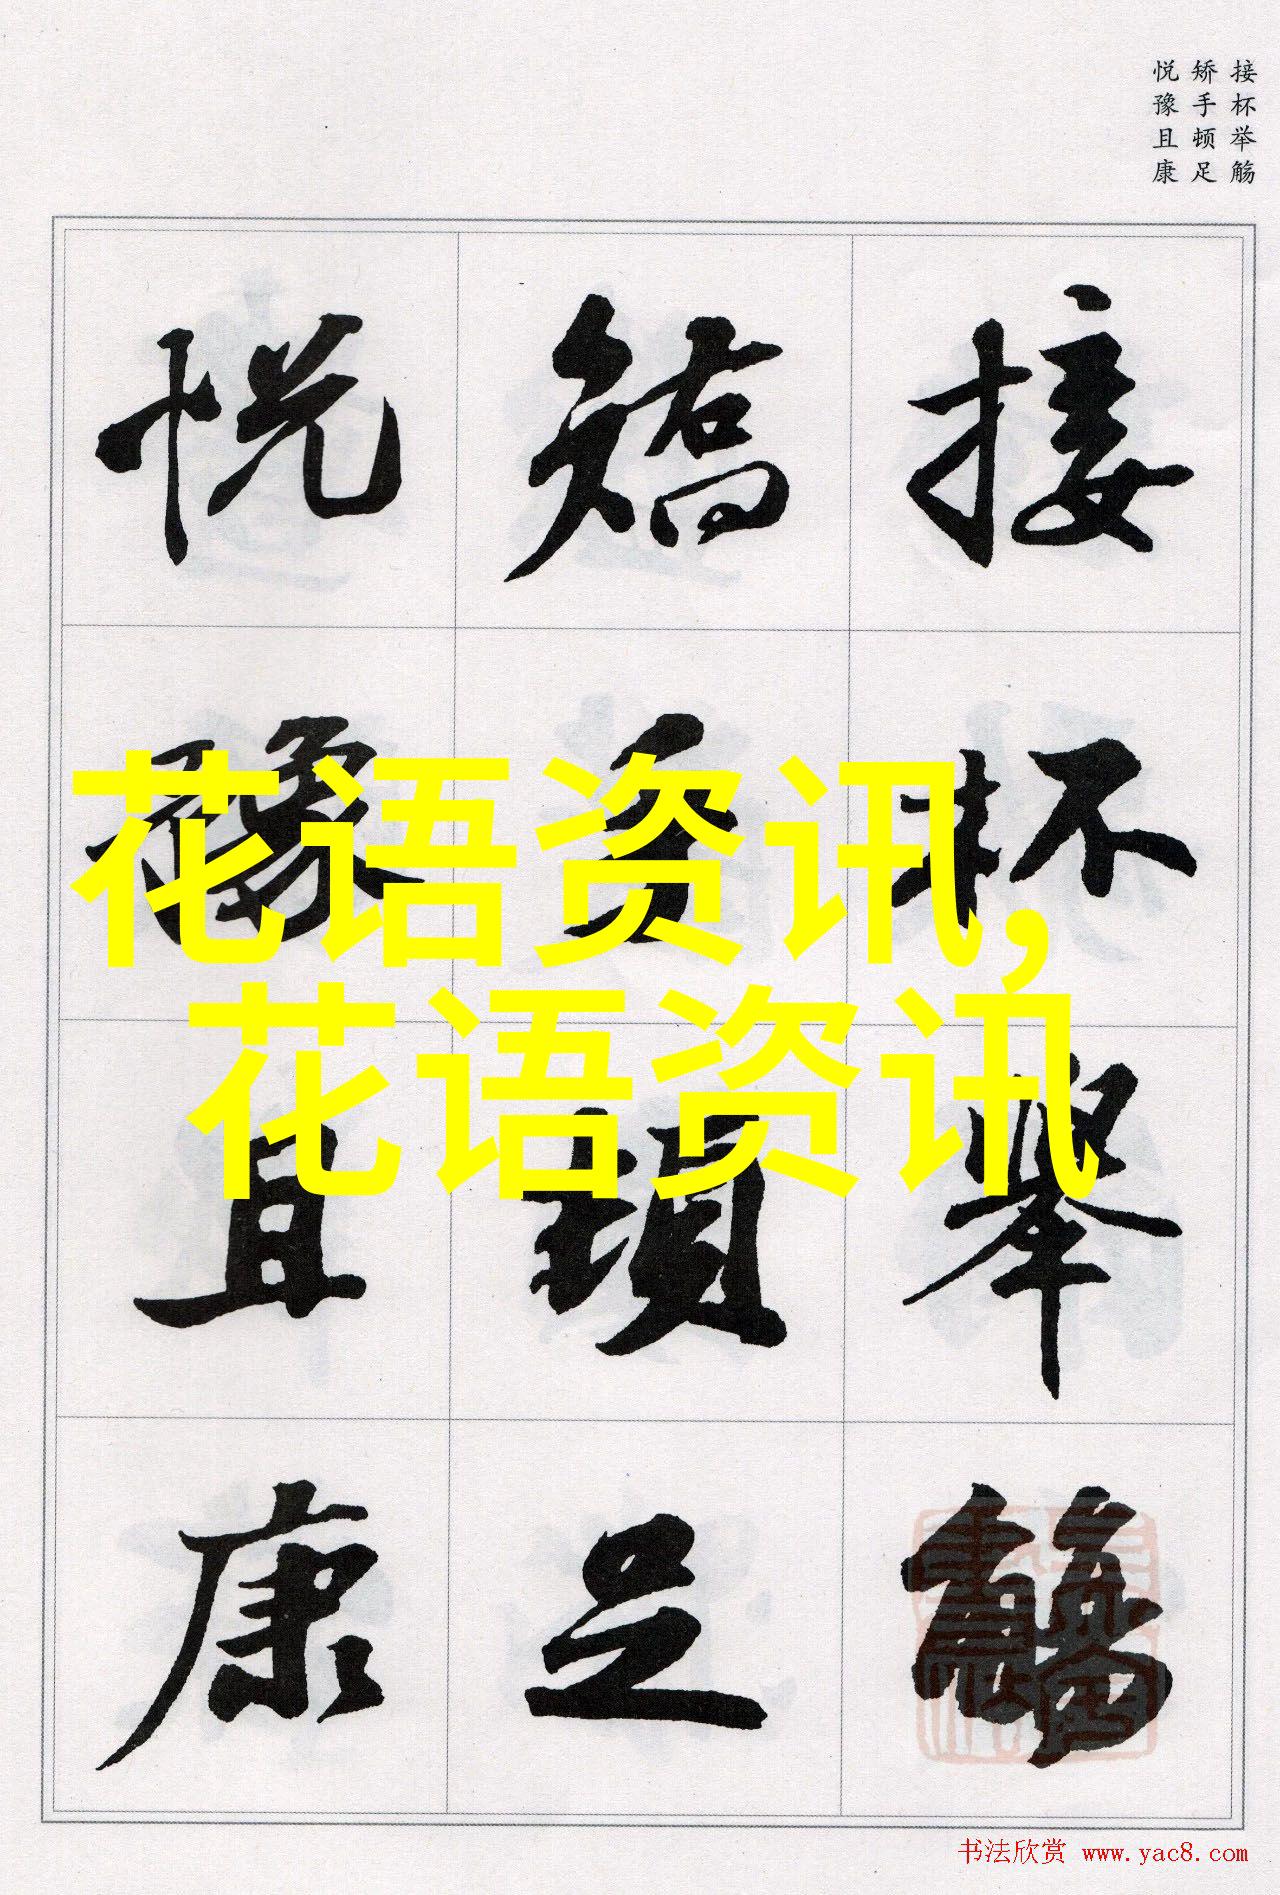 接杯举觞
矫手顿足
悦豫且康
接杯舉觴
矯手頓足
悦豫且康
花语资讯,
花语资讯
书法欣赏 www.yac8.com